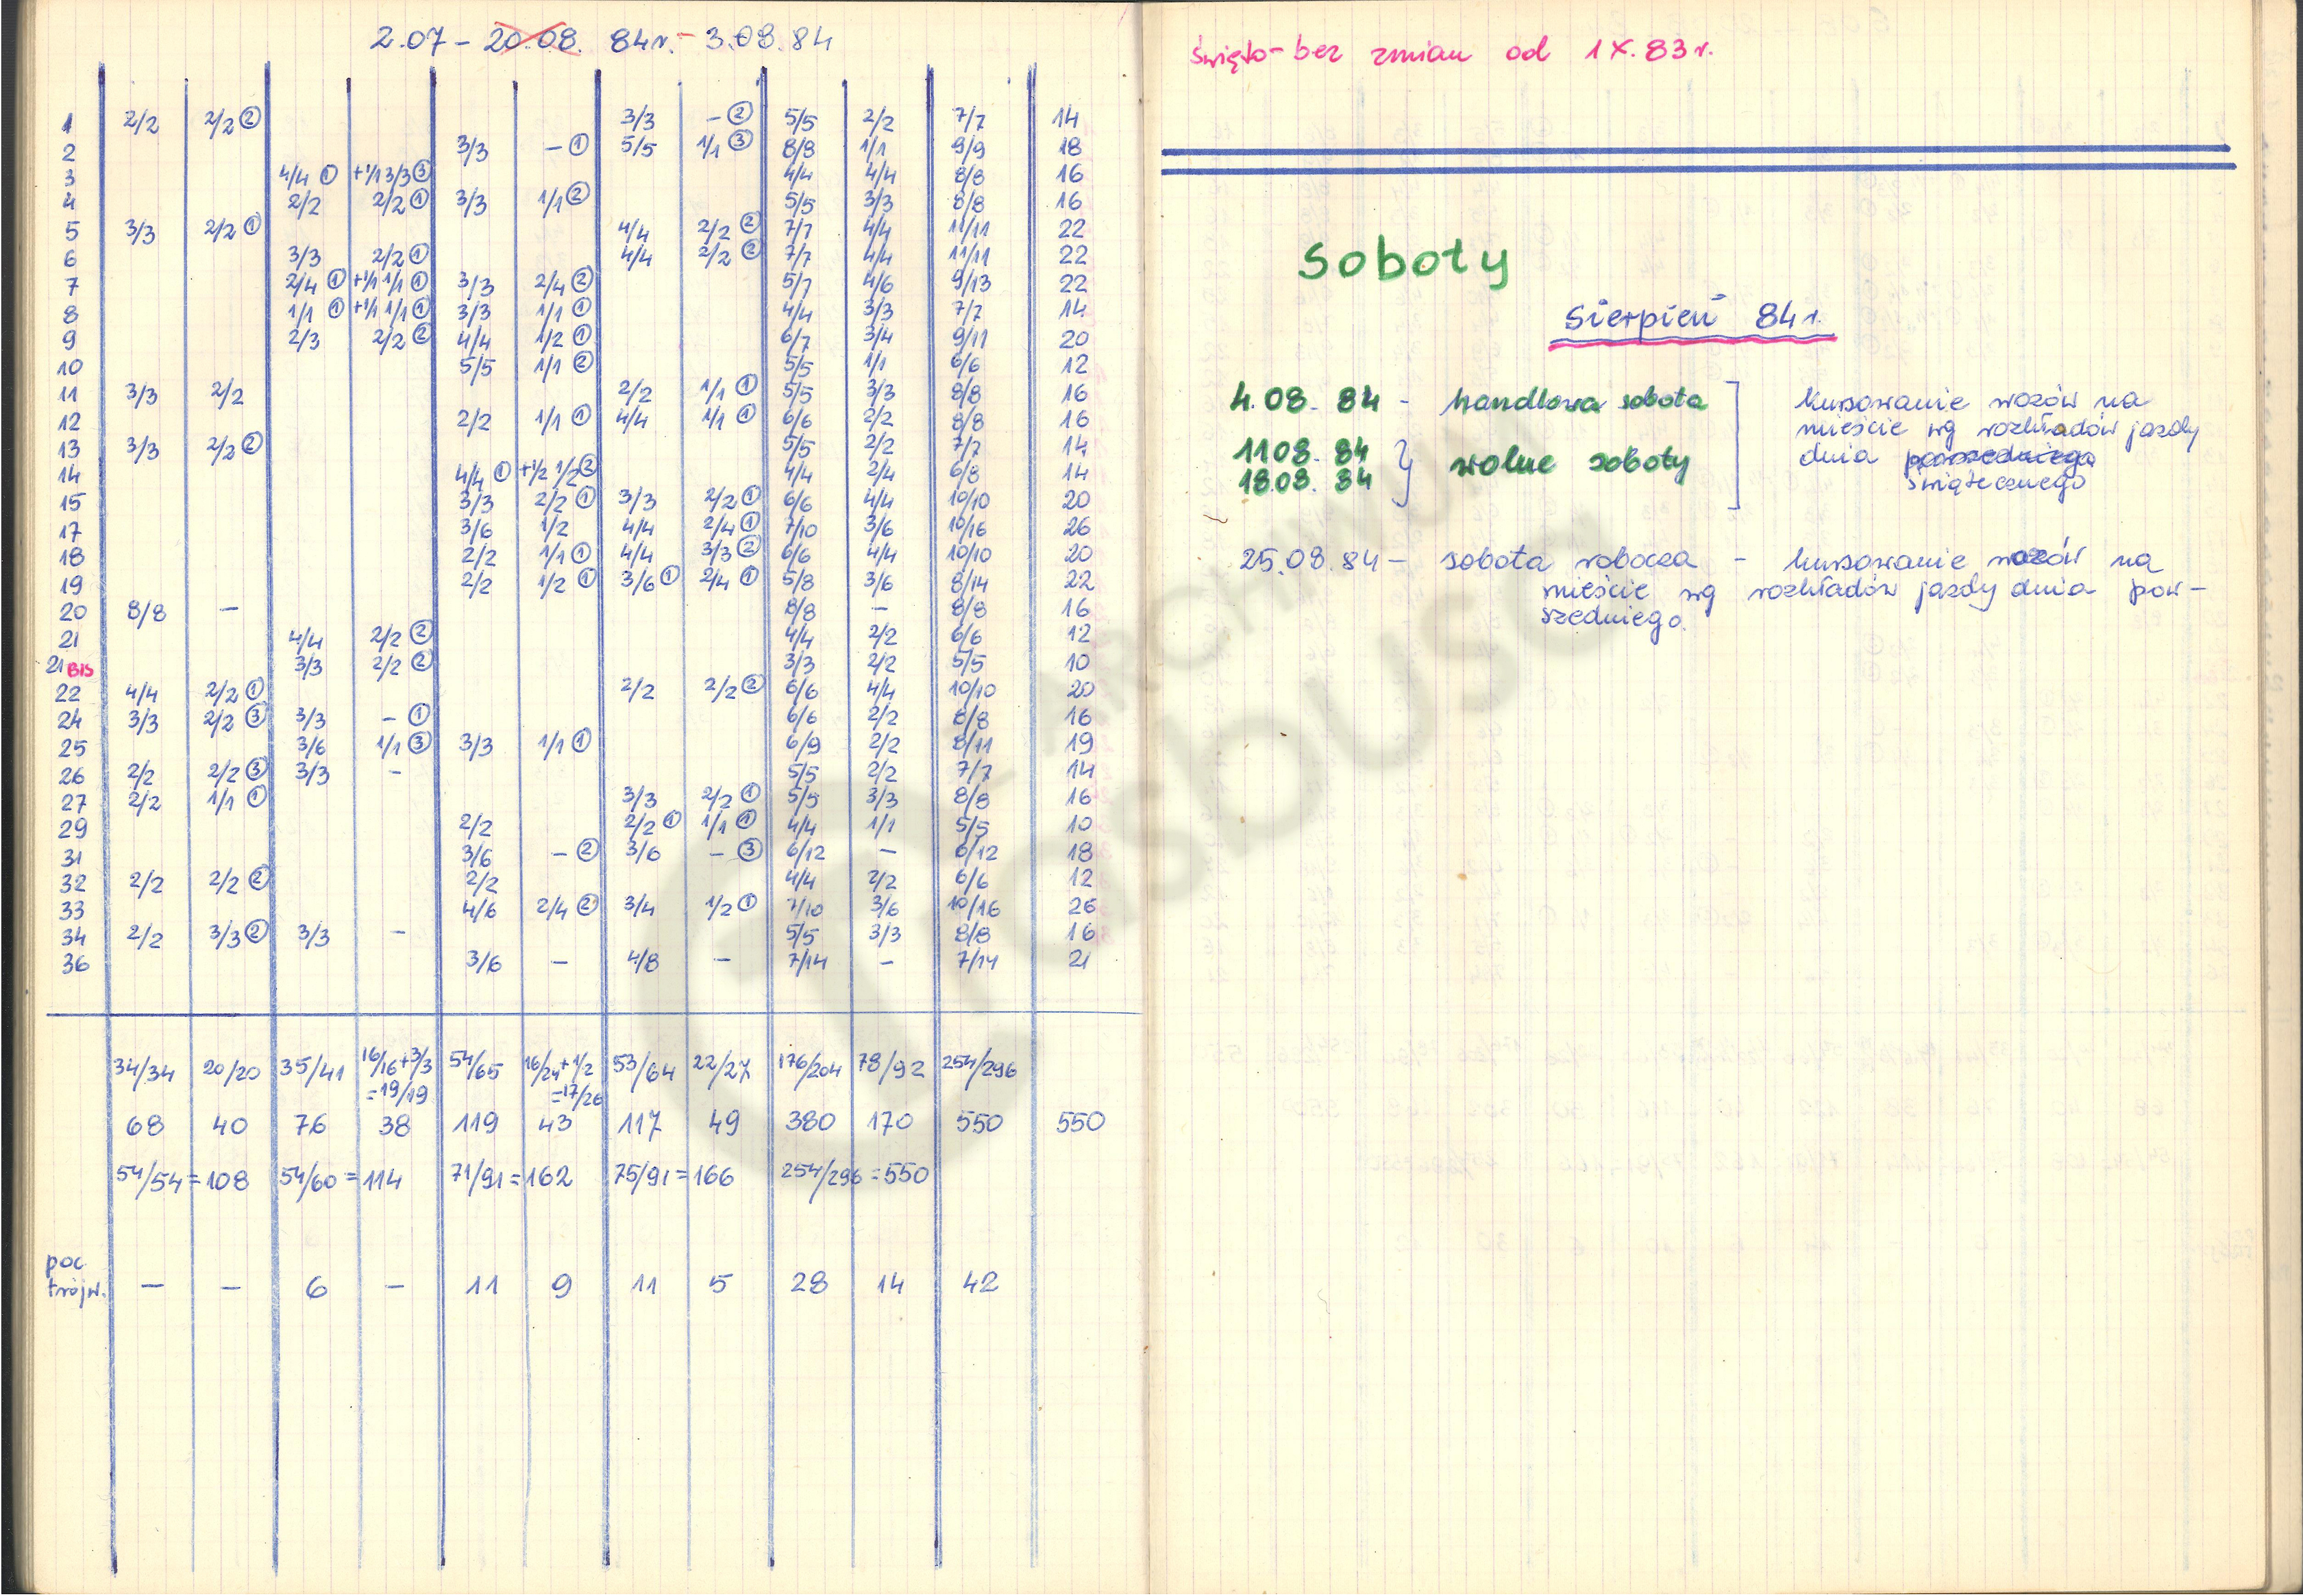 2.07 – 20.08. 84r. – 3.08.84
1 2/2 2/2 ② 3/3 – ② 5/5 2/2 7/7 14
2 3/3 – ① 5/5 1/1 ③ 8/8 1/1 9/9 18
3 4/4 ① +1/1 3/3 ③ 4/4 4/4 8/8 16
4 2/2 2/2 ① 3/3 1/1 ② 5/5 3/3 8/8 16
5 3/3 2/2 ① 4/4 2/2 ② 7/7 4/4 11/11 22
6 3/3 2/2 ① 4/4 2/2 ② 7/7 4/4 11/11 22
7 2/4 ① +1/1 1/1 ① 3/3 2/4 ② 5/7 4/6 9/13 22
8 1/1 ① +1/1 1/1 ① 3/3 1/1 ① 4/4 3/3 7/7 14
9 2/3 2/2 ② 4/4 1/2 ① 6/7 3/4 9/11 20
10 5/5 1/1 ② 5/5 1/1 6/6 12
11 3/3 2/2 2/2 1/1 ① 5/5 3/3 8/8 16
12 2/2 1/1 ① 4/4 1/1 ① 6/6 2/2 8/8 16
13 3/3 2/2 ② 5/5 2/2 7/7 14
14 4/4 ① +1/2 1/2 ② 4/4 2/4 6/8 14
15 3/3 2/2 ① 3/3 2/2 ① 6/6 4/4 10/10 20
17 3/6 1/2 4/4 2/4 ① 7/10 3/6 10/16 26
18 2/2 1/1 ① 4/4 3/3 ② 6/6 4/4 10/10 20
19 2/2 1/2 ① 3/6 ① 2/4 ① 5/8 3/6 8/14 22
20 8/8 – 8/8 – 8/8 16
21 4/4 2/2 ② 4/4 2/2 6/6 12
21 BIS 3/3 2/2 ② 3/3 2/2 5/5 10
22 4/4 2/2 ① 2/2 2/2 ② 6/6 4/4 10/10 20
24 3/3 2/2 ③ 3/3 – ① 6/6 2/2 8/8 16
25 3/6 1/1 ③ 3/3 1/1 ① 6/9 2/2 8/11 19
26 2/2 2/2 ③ 3/3 – 5/5 2/2 7/7 14
27 2/2 1/1 ① 3/3 2/2 ① 5/5 3/3 8/8 16
29 2/2 2/2 ① 1/1 ① 4/4 1/1 5/5 10
31 3/6 – ② 3/6 – ③ 6/12 – 6/12 18
32 2/2 2/2 ② 2/2 4/4 2/2 6/6 12
33 4/6 2/4 ② 3/4 1/2 ① 7/10 3/6 10/16 26
34 2/2 3/3 ② 3/3 – 5/5 3/3 8/8 16
36 3/6 – 4/8 – 7/14 – 7/14 21
34/34 20/20 35/41 16/16+3/3 54/65 16/24+1/2 53/64 22/27 176/204 78/92 254/296
=19/19 =17/26
68 40 76 38 119 43 117 49 380 170 550 550
54/54=108 54/60=114 71/91=162 75/91=166 254/296=550
poc
trójw. – – 6 – 11 9 11 5 28 14 42
święto – bez zmian od 1 X. 83 r.
Soboty
Sierpień 84 r.
4.08. 84 – handlowa sobota
11.08. 84
18.08. 84 } wolne soboty
kursowanie wozów na
mieście wg rozkładów jazdy
dnia powszedniego
świątecznego
25.08.84 – sobota robocza – kursowanie wozów na
mieście wg rozkładów jazdy dnia pow–
szedniego.
ARCHIWUM
Trasbusa